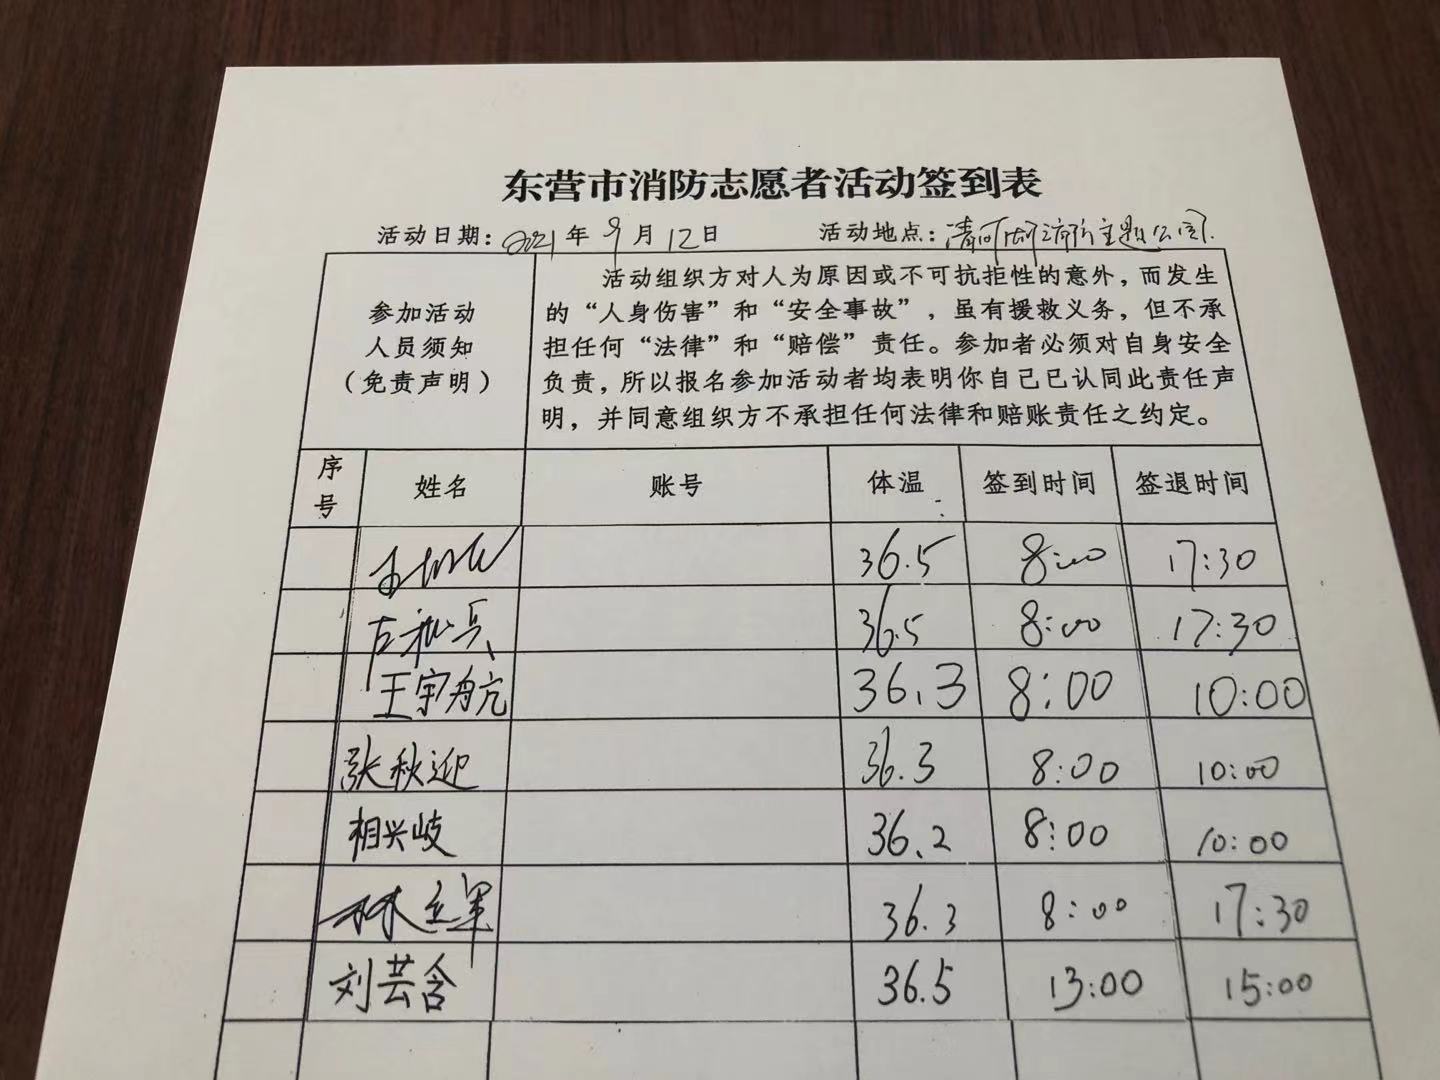 东营市消防志愿者活动签到表
活动日期：2021年9月12日 活动地点：清河湖消防主题公园
参加活动
人员须知
（免责声明）
活动组织方对人为原因或不可抗拒性的意外，而发生
的“人身伤害”和“安全事故”，虽有援救义务，但不承
担任何“法律”和“赔偿”责任。参加者必须对自身安全
负责，所以报名参加活动者均表明你自己已认同此责任声
明，并同意组织方不承担任何法律和赔账责任之约定。
序号 姓名 账号 体温 签到时间 签退时间
36.5 8:00 17:30
36.5 8:00 17:30
王宇舟亢 36.3 8:00 10:00
张秋迎 36.3 8:00 10:00
相兴岐 36.2 8:00 10:00
林立军 36.3 8:00 17:30
刘芸含 36.5 13:00 15:00